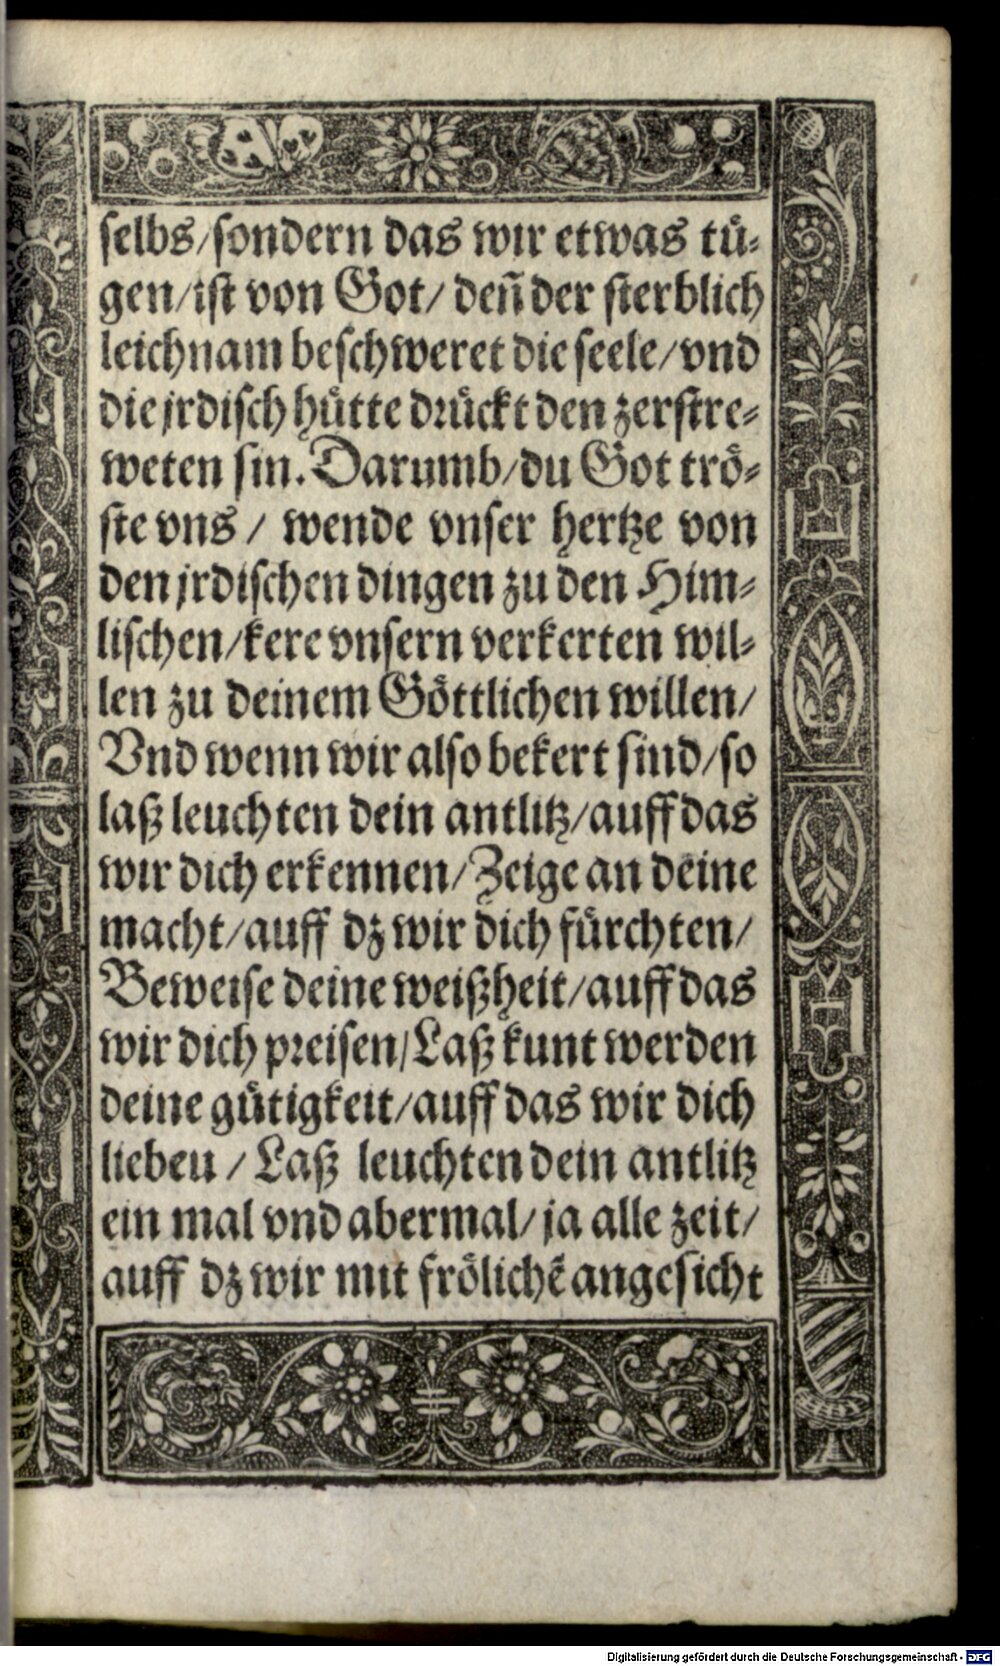 selbs/sondern das wir etwas tuͤ-
gen/ist von Got/ deñ der sterblich
leichnam beschweret die seele/vnd
die jrdisch huͤtte druͤckt den zerstre-
weten sin. Darumb/du Got troͤ-
ste vns / wende vnser hertze von
den jrdischen dingen zu den Him-
lischen/kere vnsern verkerten wil-
len zu deinem Goͤttlichen willen/
Vnd wenn wir also bekert sind/so
laß leuchten dein antlitz/auff das
wir dich erkennen/Zeige an deine
macht/auff dz wir dich fuͤrchten/
Beweise deine weißheit/auff das
wir dich preisen/Laß kunt werden
deine guͤtigkeit/auff das wir dich
lieben / Laß leuchten dein antlitz
ein mal vnd abermal/ja alle zeit/
auff dz wir mit froͤlichẽ angesicht
Digitalisierung gefördert durch die Deutsche Forschungsgemeinschaft - DFG